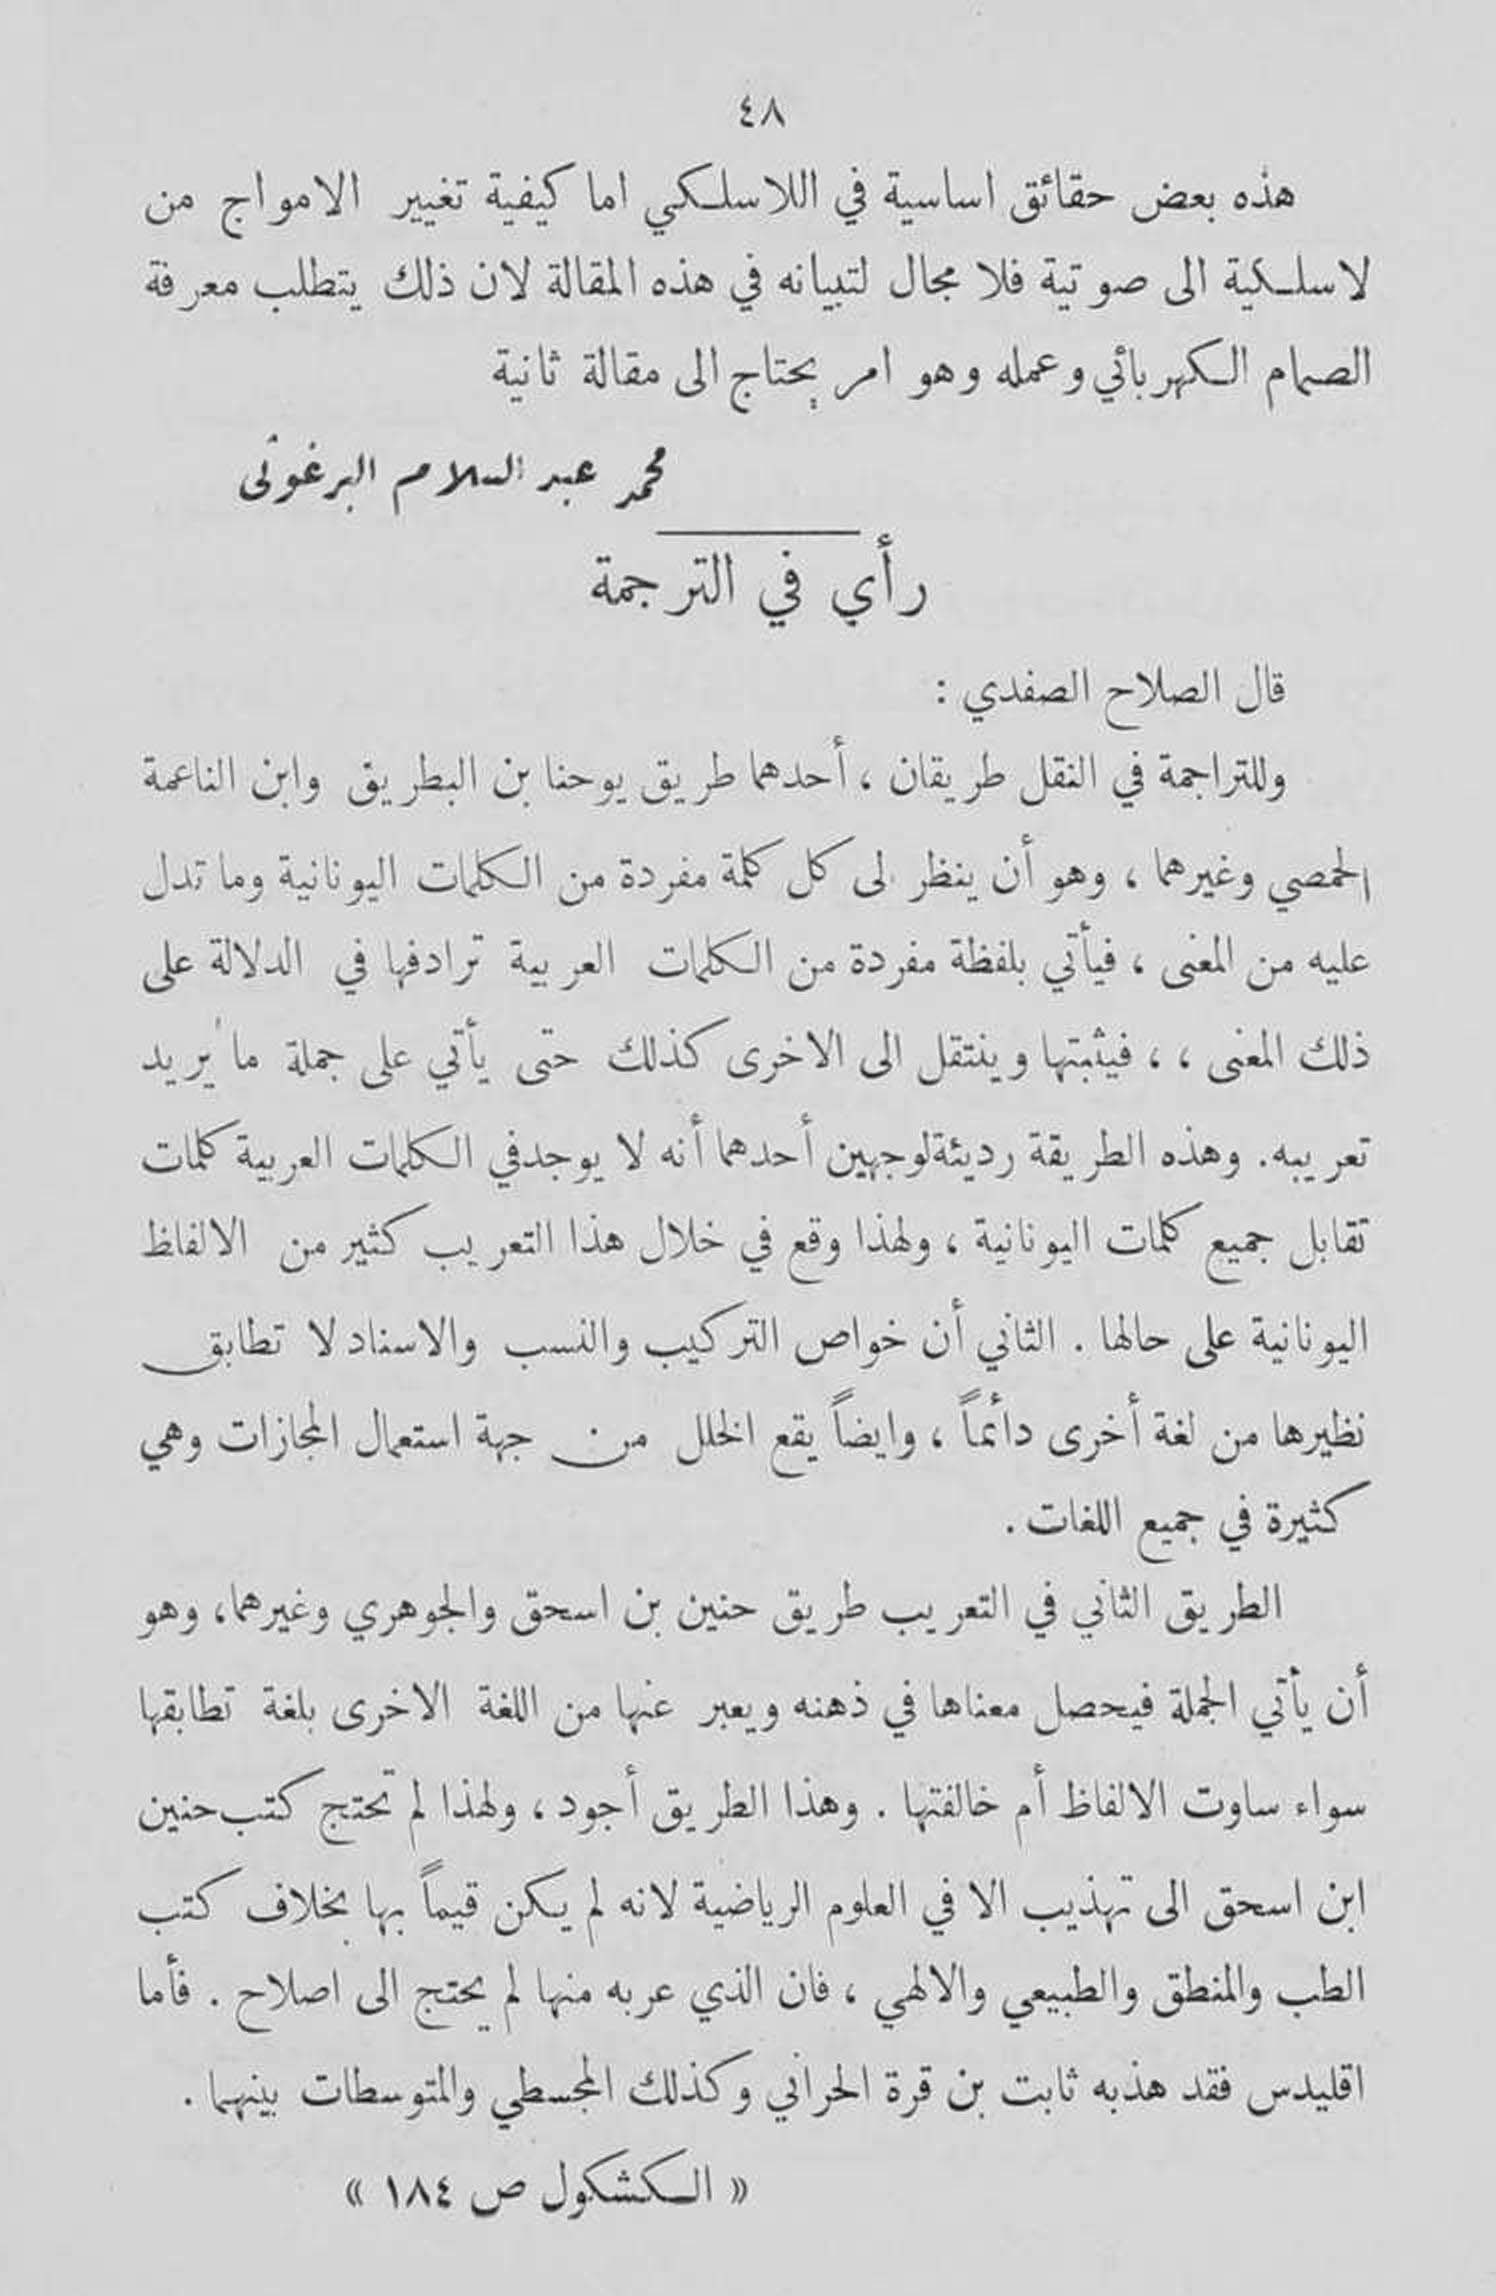 ٤٨
هذه بعض حقائق اساسية في اللاسلكي اما كيفية تغيير الامواج من
لاسلكية الى صوتية فلا مجال لتبيانه في هذه المقالة لان ذلك يتطلب معرفة
الصمام الكهربائي وعمله وهو امر يحتاج الى مقالة ثانية
محمد عبد السلام البرغوثي
رأي في الترجمة
قال الصلاح الصفدي :
وللتراجمة في النقل طريقان ، أحدهما طريق يوحنا بن البطريق وابن الناعمة
الحمصي وغيرهما ، وهو أن ينظر لى كل كلمة مفردة من الكلمات اليونانية وما تدل
عليه من المعنى ، فيأتي بلفظة مفردة من الكلمات العربية ترادفها في الدلالة على
ذلك المعنى ، ، فيثبتها وينتقل الى الاخرى كذلك حتى يأتي على جملة ما يريد
تعريبه. وهذه الطريقة رديئة لوجهين أحدهما أنه لا يوجد في الكلمات العربية كلمات
تقابل جميع كلمات اليونانية ، ولهذا وقع في خلال هذا التعريب كثير من الالفاظ
اليونانية على حالها . الثاني أن خواص التركيب والنسب والاسناد لا تطابق
نظيرها من لغة أخرى دائماً ، وايضاً يقع الخلل من جهة استعمال المجازات وهي
كثيرة في جميع اللغات .
الطريق الثاني في التعريب طريق حنين بن اسحق والجوهري وغيرهما، وهو
أن يأتي الجملة فيحصل معناها في ذهنه ويعبر عنها من اللغة الاخرى بلغة تطابقها
سواء ساوت الالفاظ أم خالفتها . وهذا الطريق أجود ، ولهذا لم تحتج كتب حنين
ابن اسحق الى تهذيب الا في العلوم الرياضية لانه لم يكن قيماً بها بخلاف كتب
الطب والمنطق والطبيعي والالهي ، فان الذي عربه منها لم يحتج الى اصلاح . فأما
اقليدس فقد هذبه ثابت بن قرة الحراني وكذلك المجسطي والمتوسطات بينهما .
« الكشكول ص ١٨٤ »